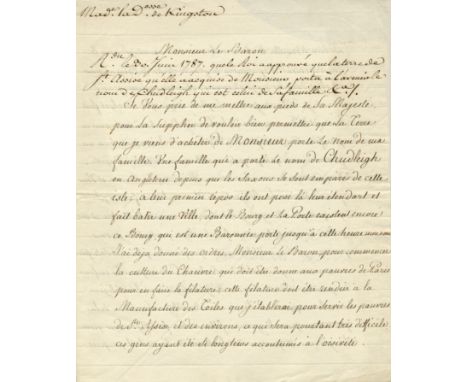 Mad.e la D.esse de Kingston
Monsieur Le Baron
R. du le 30. Juin 1787. que le Roi a approuvé que la terre de
S.te Assise qu'elle a acquise de Monsieur porte à l'avenir le
nom de Chudleigh qui est celui de sa famille &c.
Je Vous prie de me mettre aux pieds de Sa Majesté
pour La Supplier de vouloir bien permettre que La Terre
que je viens d'acheter de Monsieur porte Le nom de ma
famille. Une famille qui a porté Le nom de Chudleigh
en Angleterre depuis que les Saxons se sont emparés de cette
isle; a leur premier repos ils ont posé là leur étendart et
fait batir une Ville, dont le Bourg et La Porte existent encore
ce Bourg qui est une Baronnie porte jusqu'à cette heure mon nom
J'ai deja donné des ordres, Monsieur le Baron, pour commencer
la culture du Chanvre qui doit être donné aux pauvres de Paris
pour en faire la filature; cette filature doit être rendue à la
Manufacture des Toiles que j'établirai, pour servir les pauvres
de S.te Assise et des environs, ce qui sera pourtant très difficile
ces gens ayant été si longtems accoutumés à l'oisiveté.